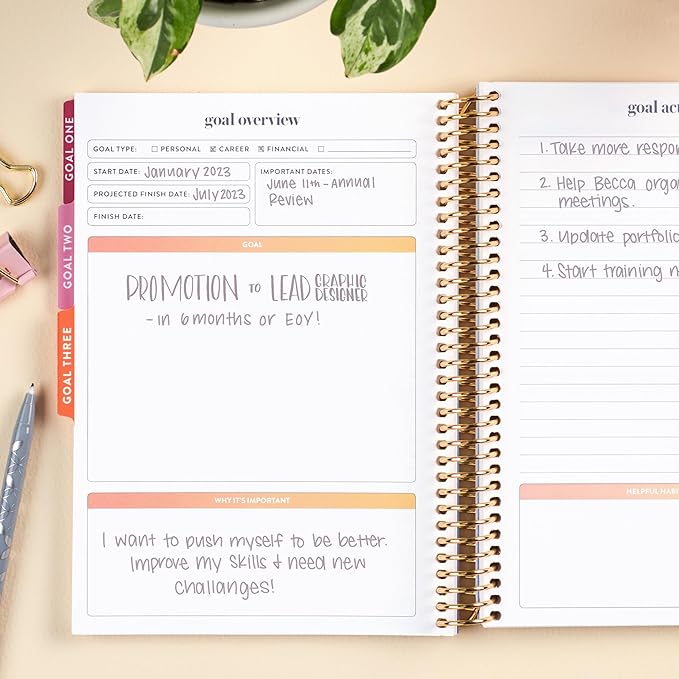 goal overview
GOAL TYPE: PERSONAL CAREER FINANCIAL
START DATE: January 2023
PROJECTED FINISH DATE: July 2023
FINISH DATE:
IMPORTANT DATES:
June 11th - Annual
Review
GOAL
PROMOTION to LEAD GRAPHIC DESIGNER
- in 6 months or EOY!
WHY IT'S IMPORTANT
I want to push myself to be better.
Improve my skills & need new
challanges!
GOAL ONE
GOAL TWO
GOAL THREE
goal
1. Take more
2. Help Becca
meetings.
3. Update portfolio
4. Start training
HELPFUL